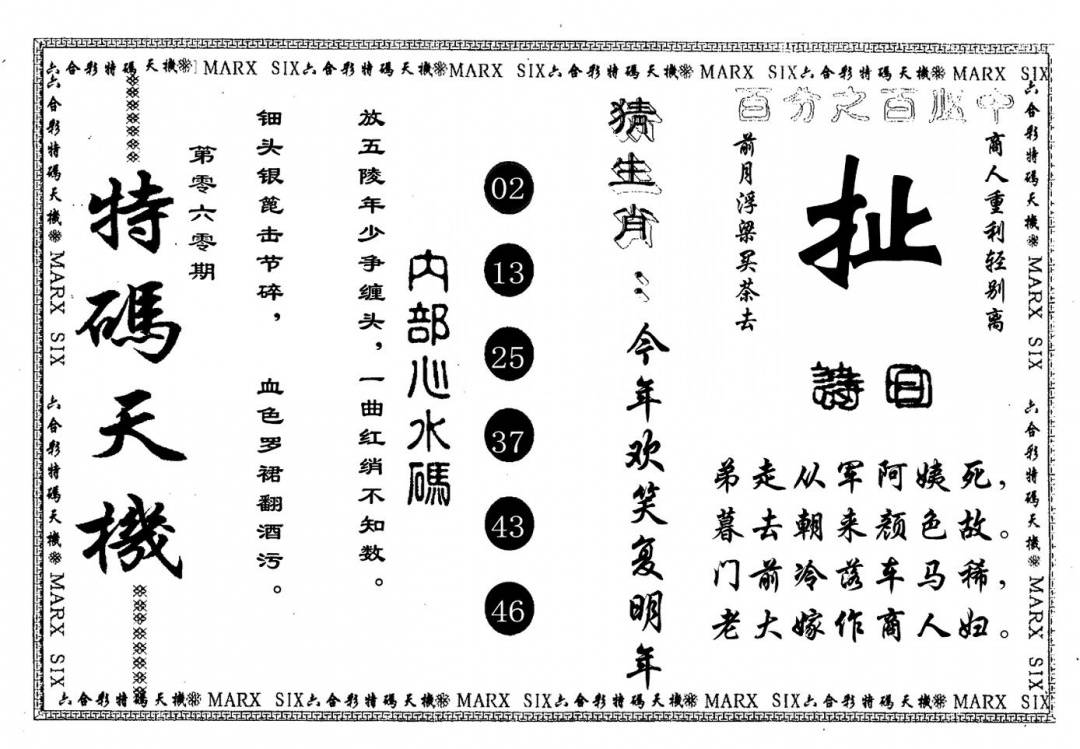 六合彩特碼天機❋ MARX SIX六合彩特碼天機❋MARX SIX六合彩特碼天機❋ MARX SIX六合彩特碼天機❋ MARX SIX
六合彩特碼天機❋ MARX SIX 六合彩特碼天機❋ MARX SIX
特碼天機
第零六零期
钿头银篦击节碎, 血色罗裙翻酒污。
放五陵年少争缠头,一曲红绡不知数。
内部心水碼
02
13
25
37
43
46
猜生肖:今年欢笑复明年
百分之百必中
商人重利轻别离
扯
前月浮梁买茶去
詩曰
弟走从军阿姨死,
暮去朝来颜色故。
门前冷落车马稀,
老大嫁作商人妇。
六合彩特碼天機❋ MARX SIX 六合彩特碼天機❋ MARX SIX
六合彩特碼天機❋ MARX SIX六合彩特碼天機❋ MARX SIX六合彩特碼天機❋ MARX SIX六合彩特碼天機❋ MARX SIX